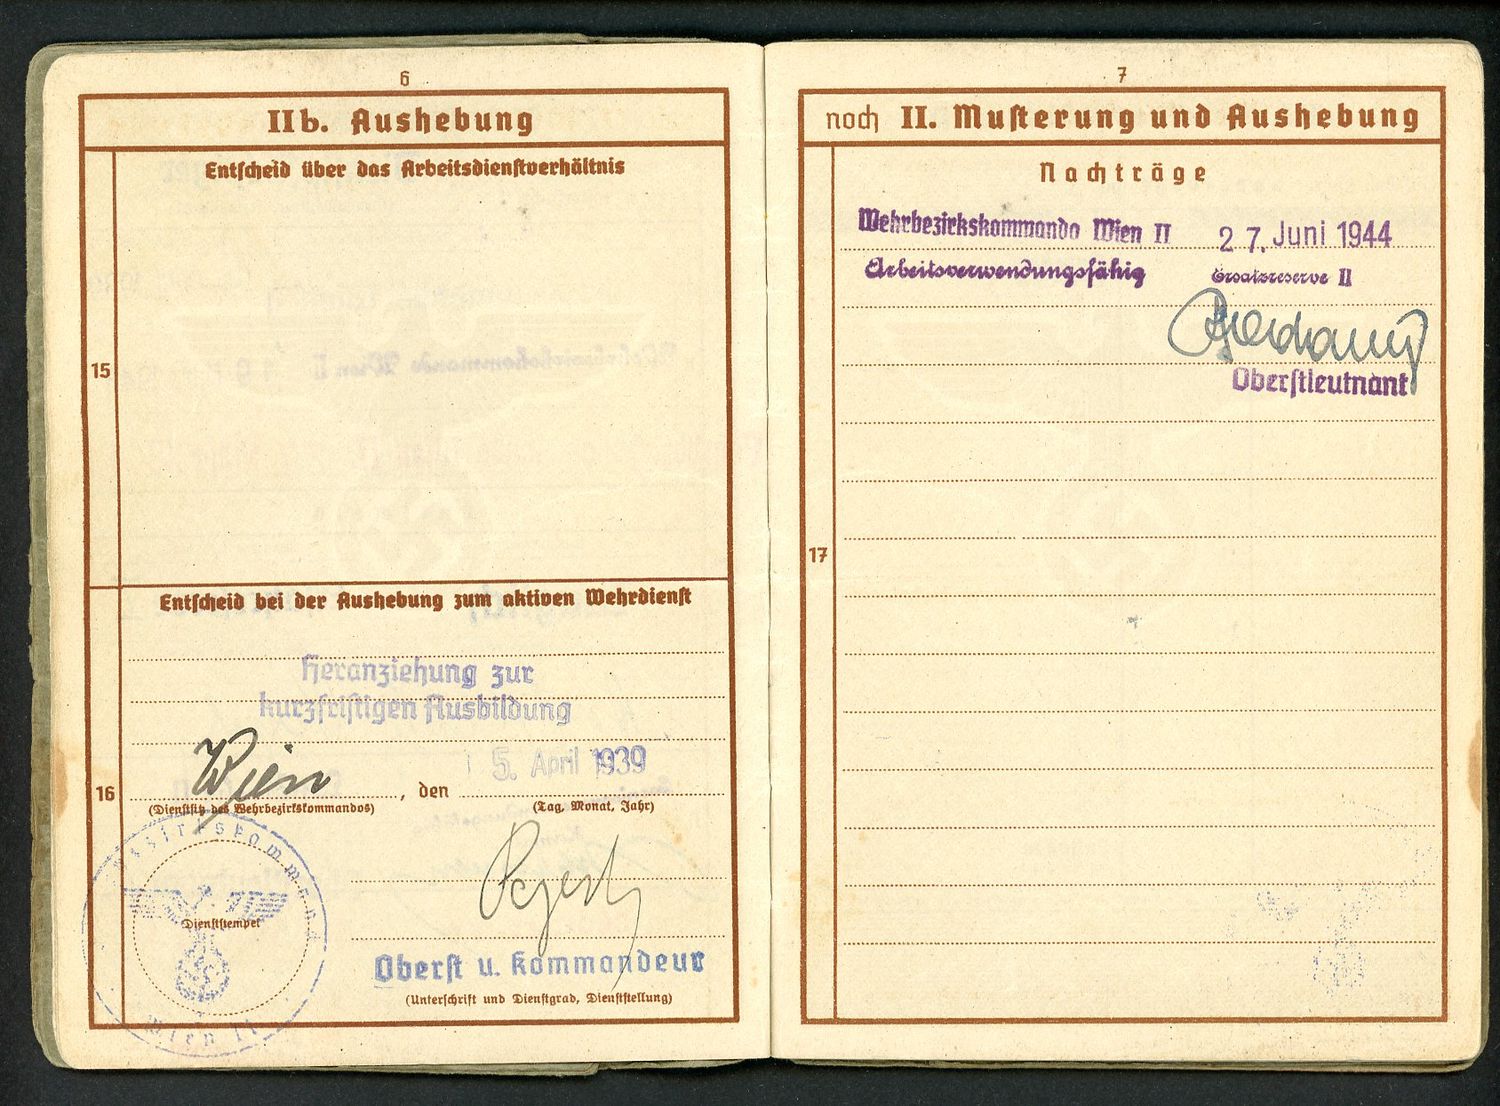 6
IIb. Aushebung
Entscheid über das Arbeitsdienstverhältnis
15
Entscheid bei der Aushebung zum aktiven Wehrdienst
Heranziehung zur
kurzfristigen Ausbildung
16
Wien, den 5. April 1939
(Dienstsitz des Wehrbezirkskommandos) (Tag, Monat, Jahr)
Dienststempel
Wien II
Oberst u. Kommandeur
(Unterschrift und Dienstgrad, Dienststellung)
7
noch II. Musterung und Aushebung
Nachträge
Wehrbezirkskommando Wien II 27. Juni 1944
Arbeitsverwendungsfähig Ersatzreserve II
Oberstleutnant
17